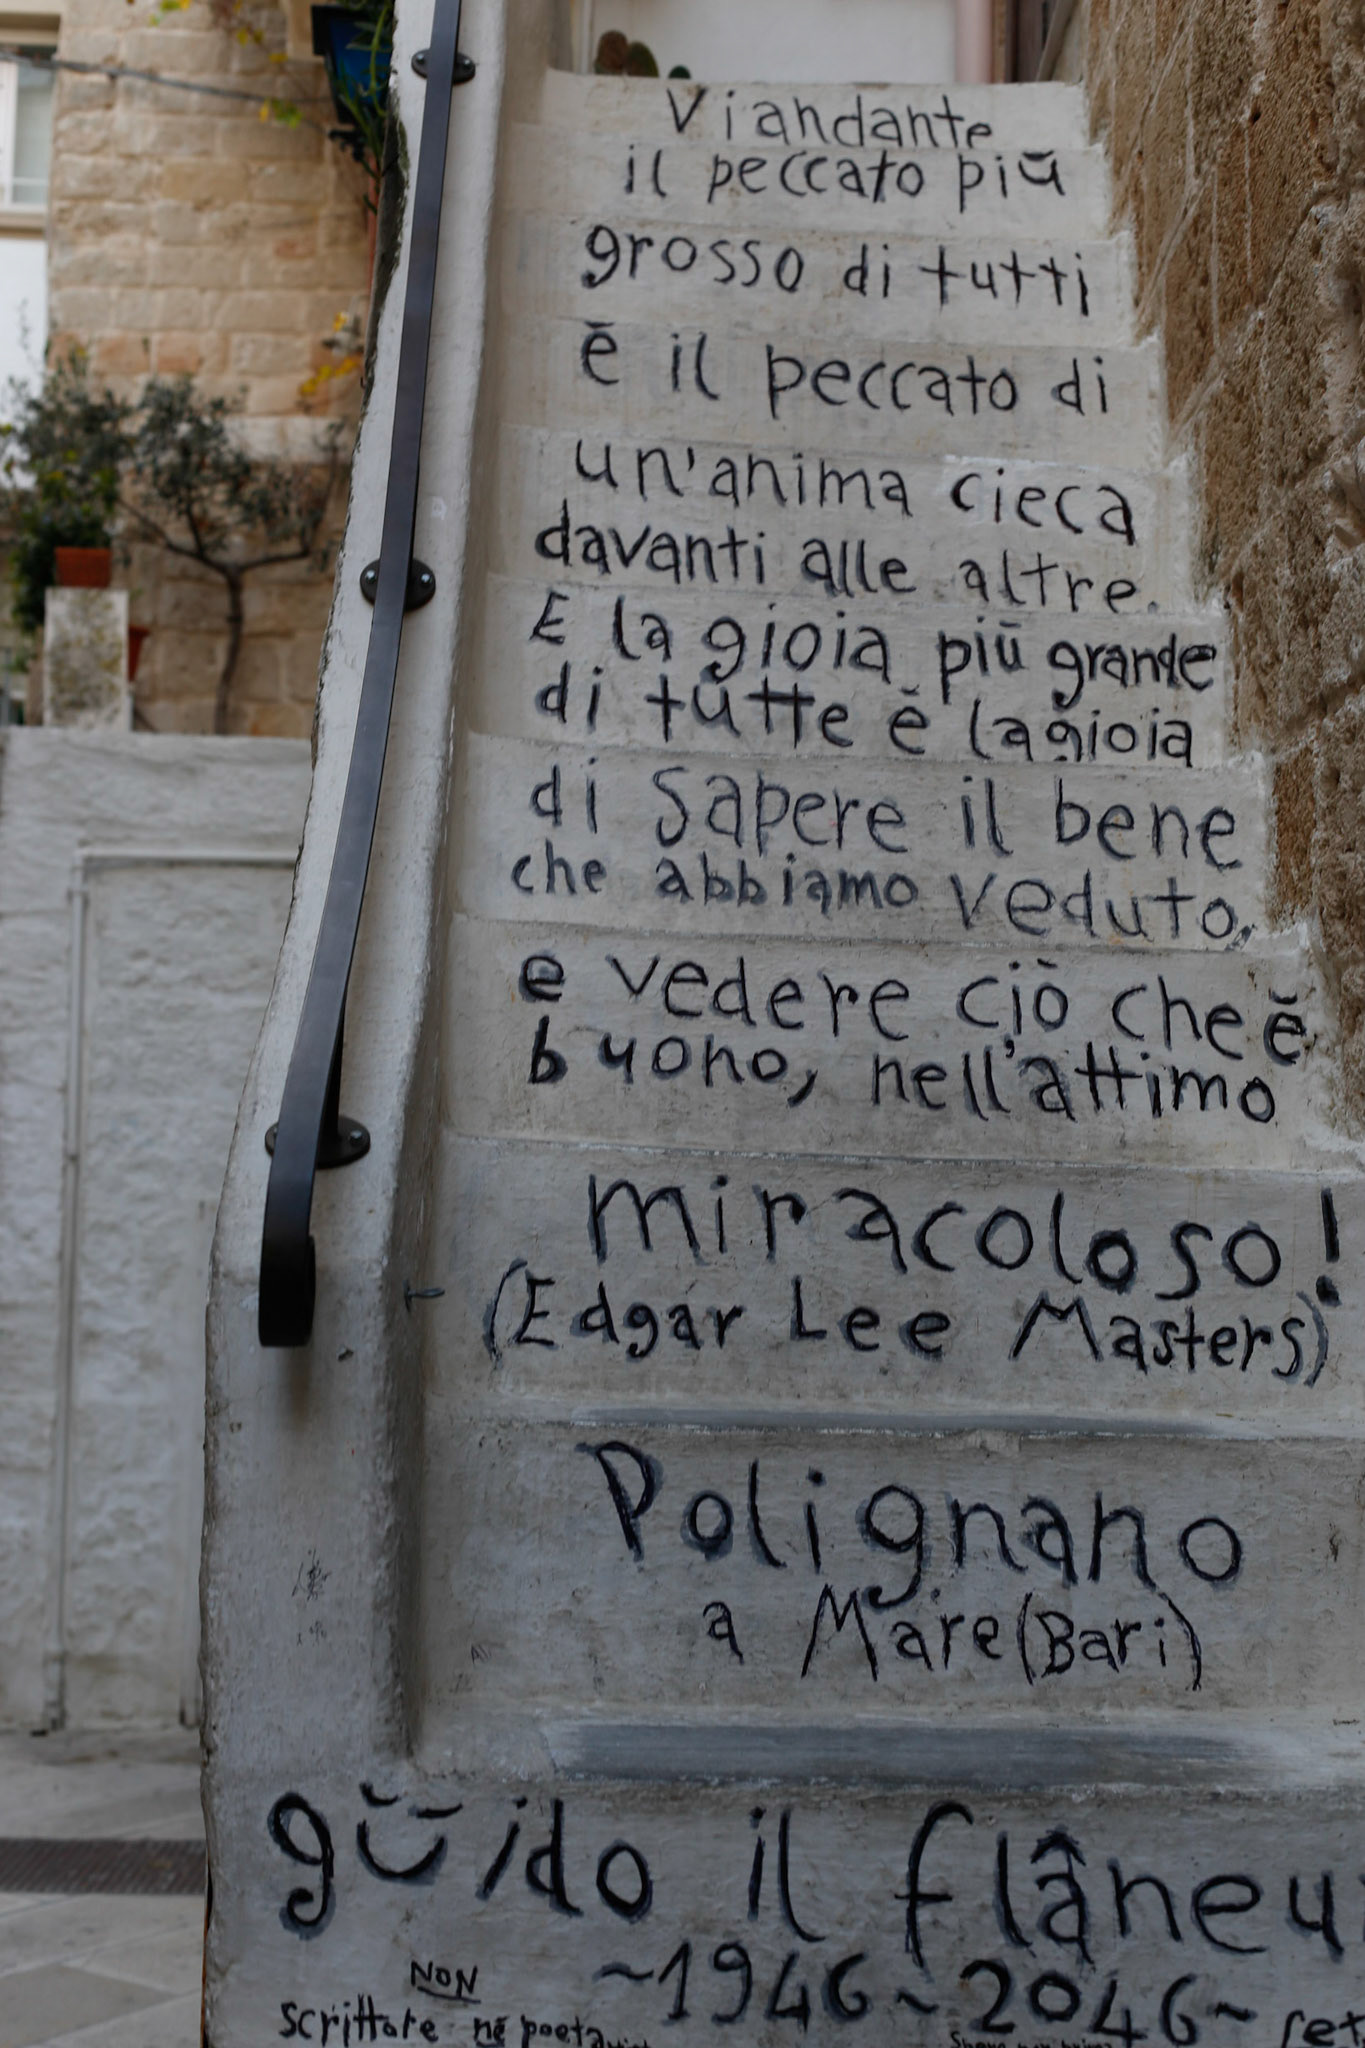 Viandante
il peccato più
grosso di tutti
è il peccato di
un'anima cieca
davanti alle altre.
E la gioia più grande
di tutte è la gioia
di sapere il bene
che abbiamo veduto,
e vedere ciò che è
buono, nell'attimo
miracoloso!
(Edgar Lee Masters)
Polignano
a Mare (Bari)
guido il flâneu
~1946~2046~
NON
scrittore né poeta